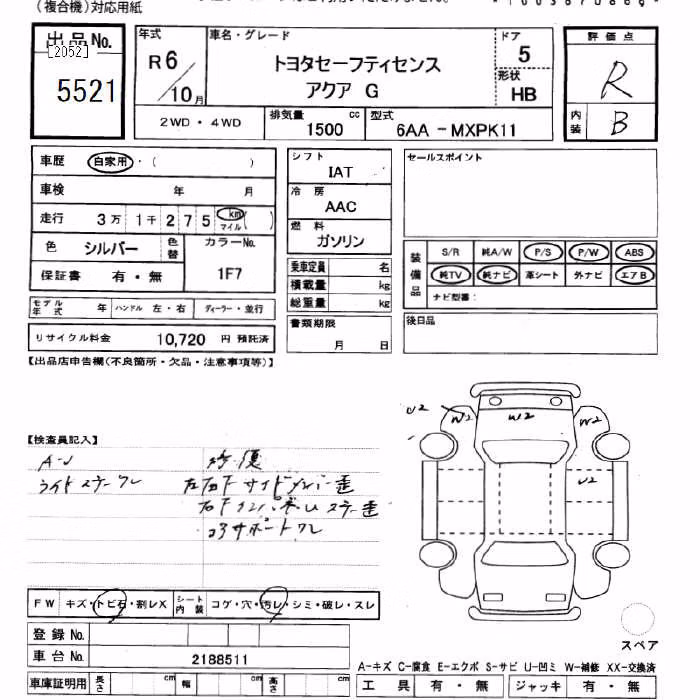 (複合機)対応用紙
出品No.
[2052]
5521
年式
R 6/10 月
車名・グレード
トヨタセーフティセンス
アクア G
ドア
5
形状
HB
評価点
R
内装
B
2WD・4WD
排気量
1500 cc
型式
6AA-MXPK11
車歴 自家用・( )
車検 年 月
走行 3万 1千 2 7 5 km マイル ( )
色 シルバー 色替
カラーNo.
1F7
保証書 有・無
モデル年式 年 ハンドル 左・右 ディーラー・並行
リサイクル料金 10,720 円 預託済
シフト
IAT
冷房
AAC
燃料
ガソリン
乗車定員 名
積載量 kg
総重量 kg
書類期限
月 日
セールスポイント
装備品
S/R 純A/W P/S P/W ABS
純TV 純ナビ 革シート 外ナビ エアB
ナビ型番:
後日品
【出品店申告欄(不良箇所・欠品・注意事項等)】
U2 W2 W2 W2
U2
【検査員記入】
A-J 修復
ライトステーワレ 左右下サイドメンバー歪
右下インバネルステー歪
コアサポートワレ
FW キズ・トビ石・割レX シート内装 コゲ・穴・汚レ・シミ・破レ・スレ
登録No.
車台No. 2188511
車庫証明用 長さ cm 幅 cm 高さ cm
スペア
A-キズ C-腐食 E-エクボ S-サビ U-凹ミ W-補修 XX-交換済
工具 有・無 ジャッキ 有・無